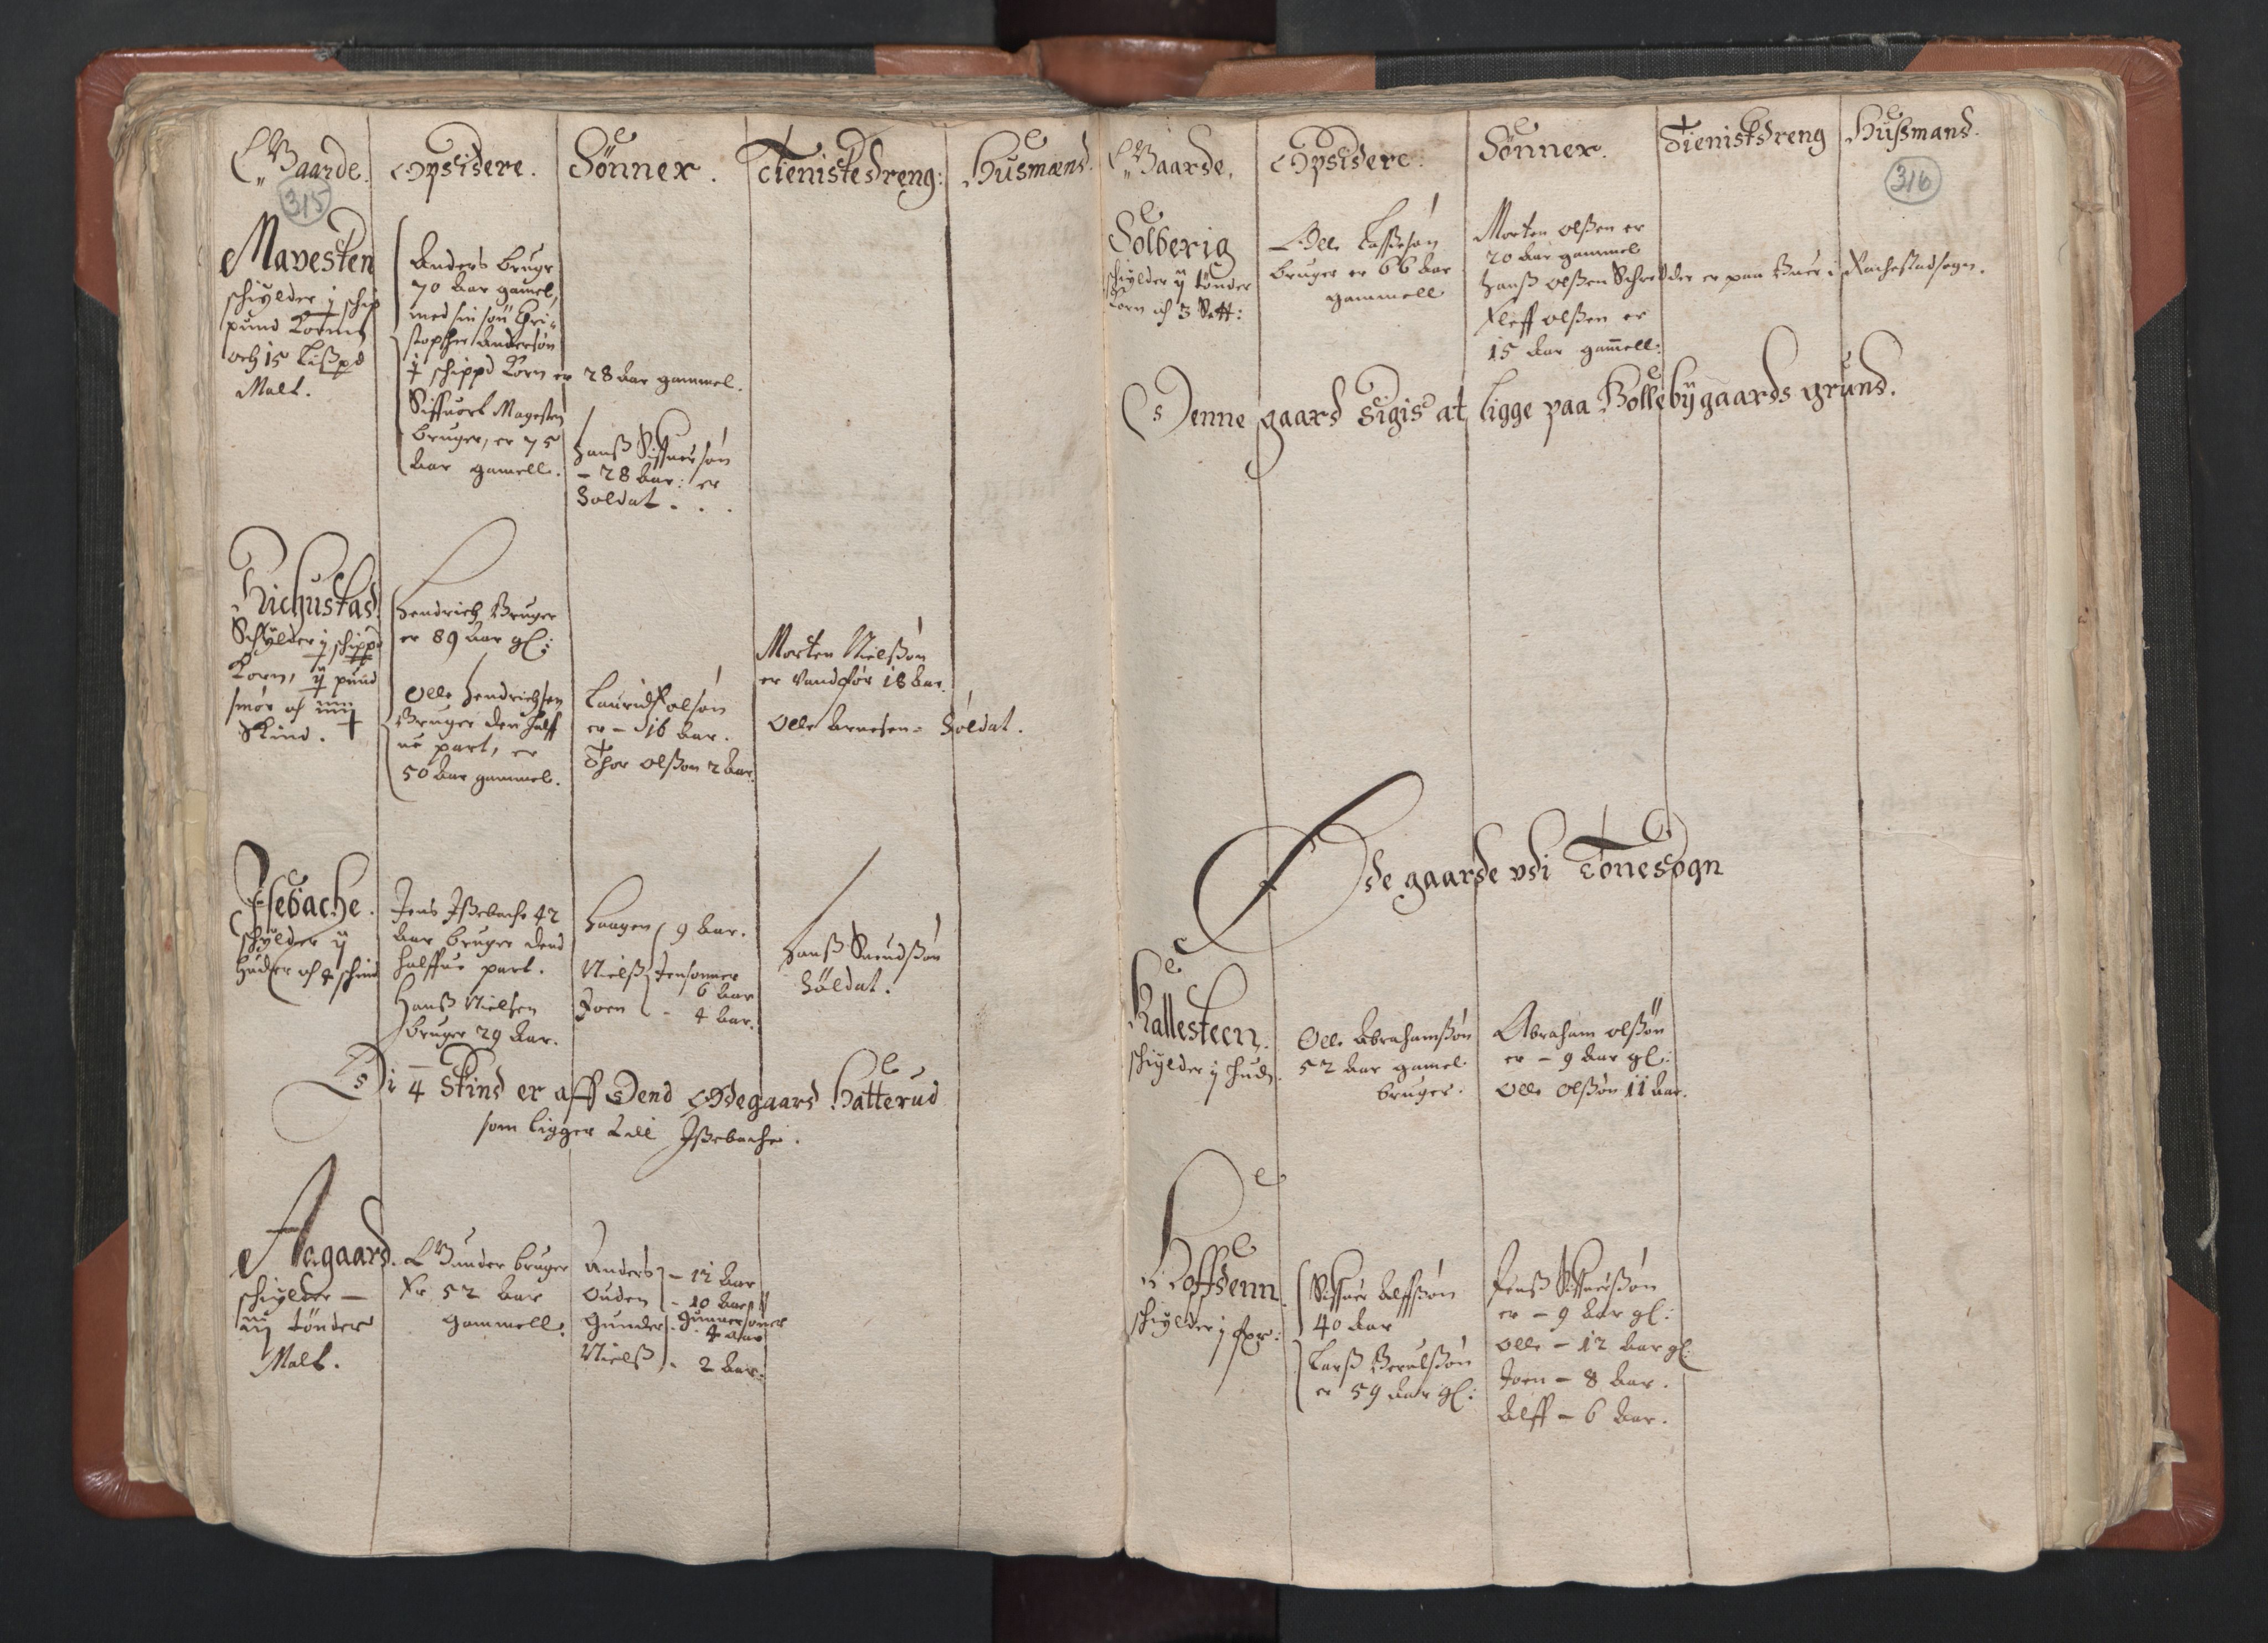 Gaarde. Opsidere. Sönner. Tienistedreng: Husmænd.
315
Mavesten
schylder j schip
pund Korns
och 15 Lißpd
Malt.
Anders bruger
70 Aar gamel,
med sin søn Chri-
stopher Andersøn
schippd Korn er 28 Aar gammel.
Siffuort Magesten
bruger, er 75
Aar gamell.
Hanß Siffuersøn
- 28 Aar: er
Soldat . . .
Richustad
Schylder j schippd
Korn, ij pund
smør och iiij
Skind.
Hendrich Bruger
er 89 Aar gl:
Olle Hendrichsen
Bruger den halff
ue part, er
50 Aar gammel.
Laurids olsøn
er - 16 Aar.
Thor olßøn 2 Aar.
Morten Nielßøn
er Vandfør 18 Aar.
Olle Arnesen - Soldat.
Isebache.
schylder ij
huder och 4 schind
Jens Ißebache 42
Aar bruger dend
halffue part.
Hanß Nielsen
bruger 29 Aar.
Haagen 9 Aar.
Nielß Jensønner
6 Aar
Joen - 4 Aar.
Hanß Suendßøn
Soldat.
Di 4 Skind er aff Dend Ødegaard Hatterud
som ligger till Ißebache.
Aagaard.
schylder -
iij tønder
Malt.
Gunder bruger
Er 52 Aar
gammell.
Anders - 12 Aar
Ouden - 10 Aar
Gunder Gunnersøner
4 Aar
Nielß - 2 Aar.
Gaarde. Opsidere. Sönner. Tienistdreng Hußmand.
316
Solberig
schylder ij tønder
Korn och 3 Sett:
Olle Laßesøn
bruger er 66 Aar
gammell
Morten olßen er
20 Aar gammel
Hanß olßen Schredder er paa Buer i Rachestad sogn.
Eleff olßen er
15 Aar gamell:
Denne gaard Sigis at ligge paa Bollebÿgaards grund.
Ødegaarde vdi Tonesogn
Hallesteen.
schylder j hud.
Olle Abrahamßøn
52 Aar gamel
bruger.
Abraham olßøn
er - 9 Aar gl:
Olle Olßøn 11 Aar.
Hoffdenn
schylder j
Siffuer Alffßøn
40 Aar
Larß Berulßøn
er 59 Aar gl:
Jenß Siffuerßøn
er - 9 Aar gl:
Olle - 12 Aar gl:
Joen - 8 Aar.
Alff - 6 Aar.